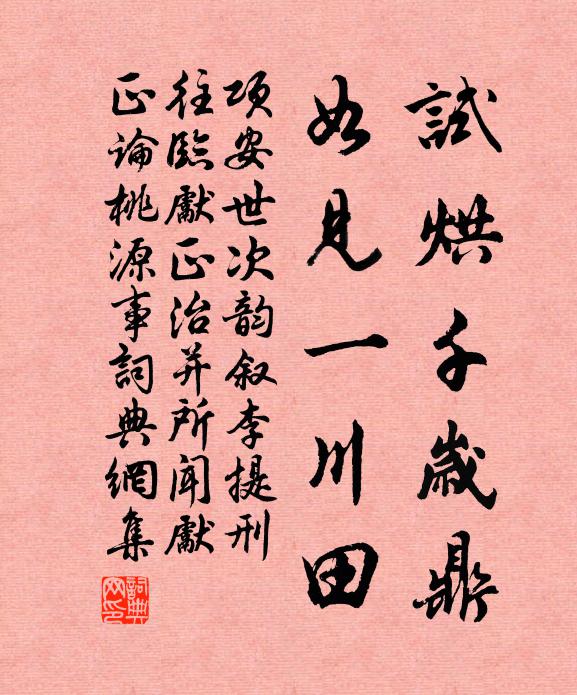 試烘千歲鼎
如見一川田
項安世次韵叙李提刑
往臨獻正治并所聞獻
正論桃源事詞典網集
詞典網印